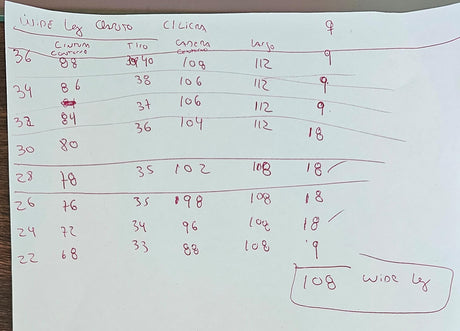 WIDE Leg
CINTURA TIRO CADERA LARGO
CONTORNO CONTORNO
36 88 40 108 112 9
34 86 38 106 112 9
32 84 37 106 112 9
36 104 112 18
30 80
28 78 35 102 108 18
26 76 35 98 108 18
24 72 34 96 108 18
22 68 33 88 108 9
108 WIDE Leg